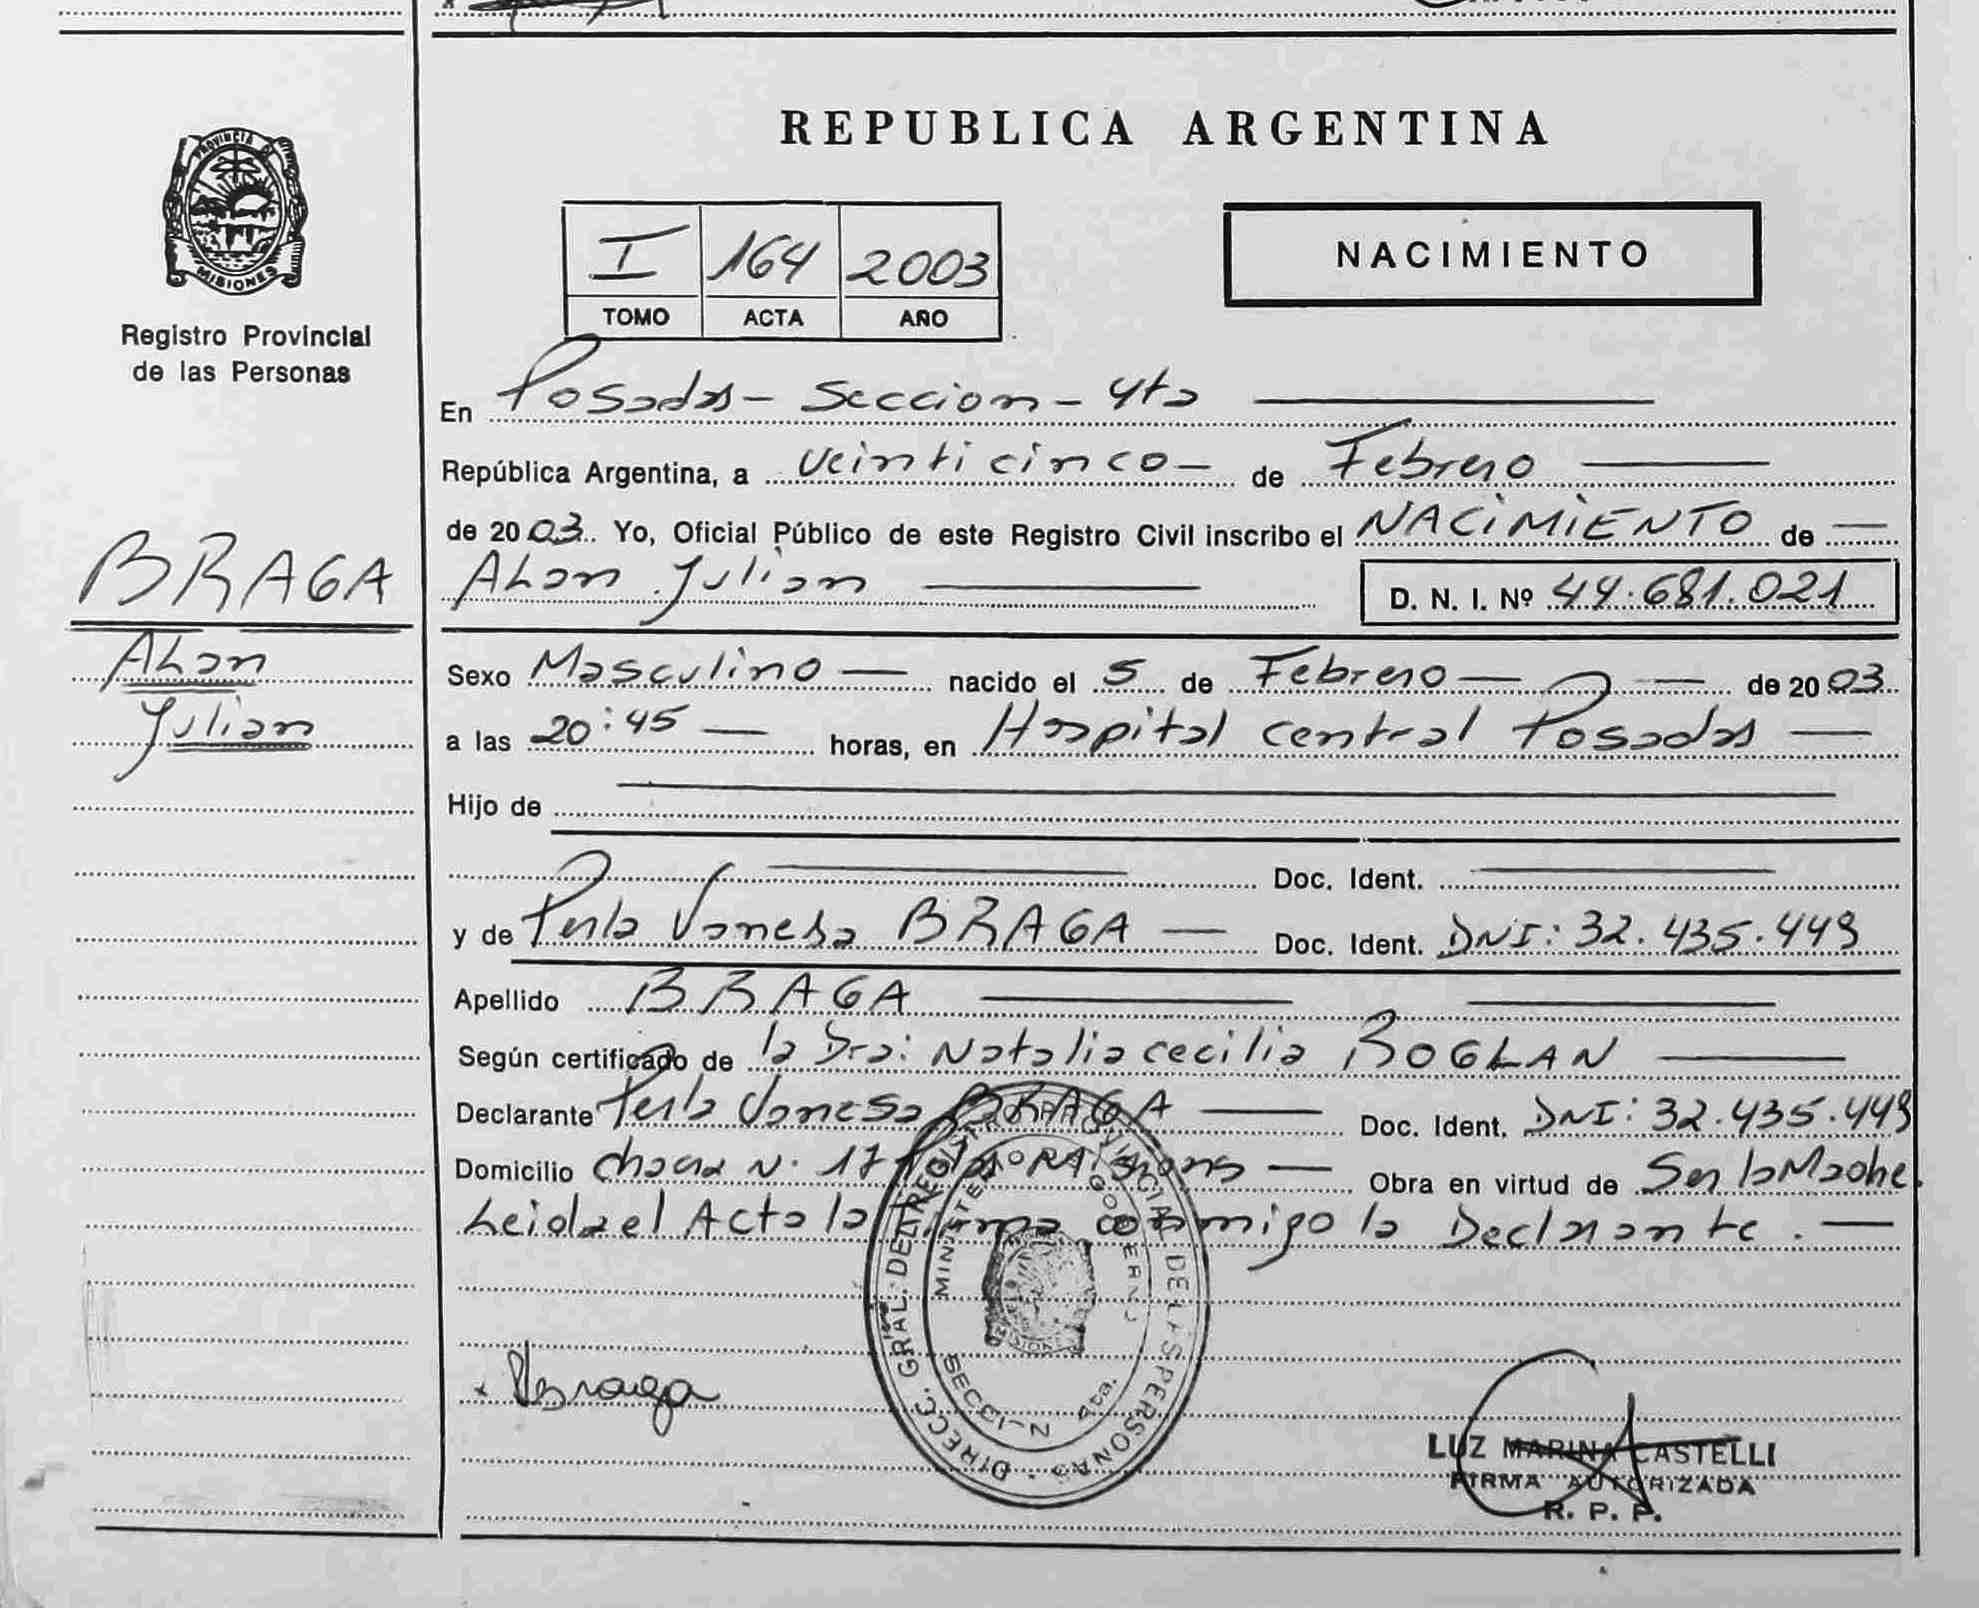 PROVINCIA DE
MISIONES
Registro Provincial
de las Personas
BRAGA
ALan
Julian
REPUBLICA ARGENTINA
I 164 2003
TOMO ACTA AÑO
NACIMIENTO
En Posadas - Seccion - 4ta
República Argentina, a veinticinco - de Febrero
de 2003. Yo, Oficial Público de este Registro Civil inscribo el NACIMIENTO de
ALan Julian D. N. I. Nº 44.681.021
Sexo Masculino nacido el 5 de Febrero de 2003
a las 20:45 horas, en Hospital central Posadas
Hijo de
Doc. Ident.
y de Perla Vanesa BRAGA Doc. Ident. DNI: 32.435.449
Apellido BRAGA
Según certificado de la Dra: Natalia cecilia BOGLAN
Declarante Perla Vanesa BRAGA Doc. Ident. DNI: 32.435.449
Domicilio chacra N. 17 Obra en virtud de Ser la Madre
Leida el Acta la Firma conmigo la Declarante.
DIRECC. GRAL. DEL REGISTRO PROVINCIAL DE LAS PERSONAS
MINISTERIO GOBIERNO
SECCION 4ta.
Braga
LUZ MARINA CASTELLI
FIRMA AUTORIZADA
R. P. P.